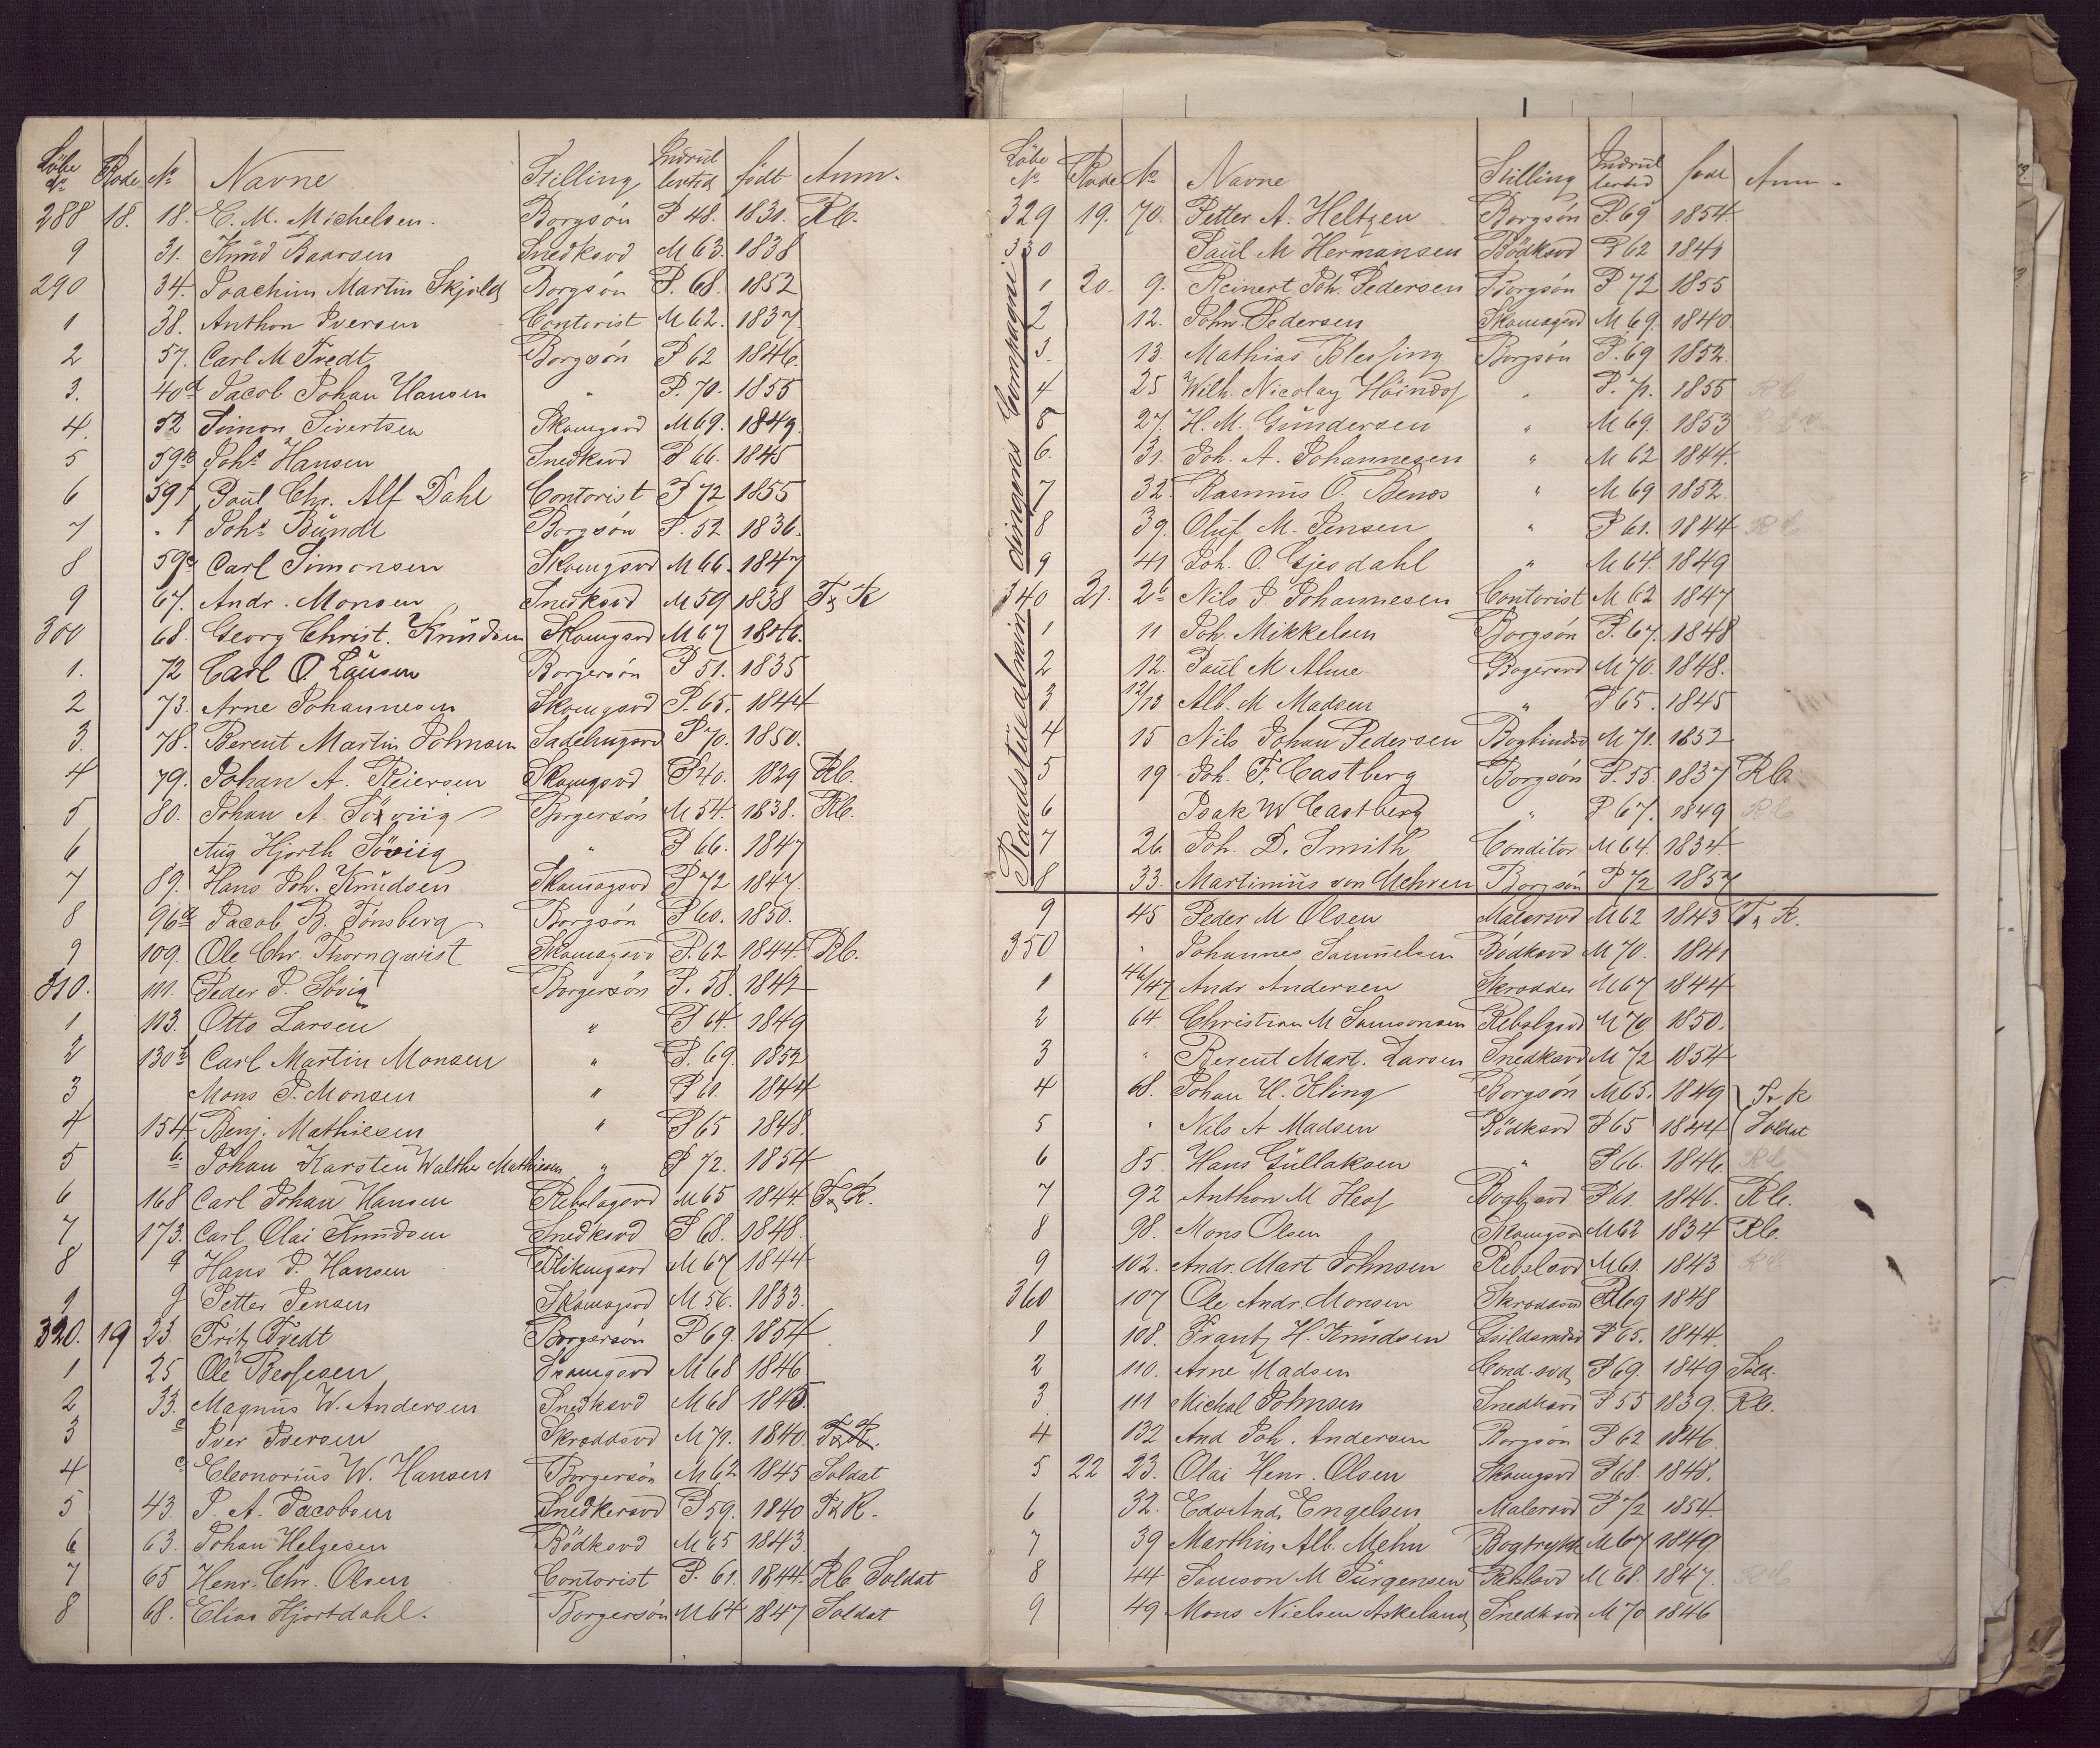 Löbe No Rode No Navne Stilling Indrullertid födt Anm.
288 18. 18. C. M. Michelsen. Borgsön P 48. 1831. Rb.
9 31. Knüd Baarsen Snedksvd M 63. 1838
290 34. Joachim Martin Skjold Borgsön P. 68. 1852
1 38. Anthon Iversen Contorist M 62. 1837.
2 57. Carl M Tvedt Borgsön P 62 1846.
3. 40d Jacob Johan Hansen " P. 70. 1855
4. 52 Simon Sivertsen Skomgsvd M 69. 1849.
5 59b Johs Hansen Snedksvd P 66. 1845
6 59f Poül Chr. Alf Dahl Contorist P 72 1855
7 " f Johs Bündt Borgsön P. 52 1836.
8 59e Carl Simonsen Skomgsvd M 66. 1847
9 67. Andr. Monsen Snedksvd M 59 1838 Tr K
300 68. Georg Christ. Knüdsen Skomgsvd M 67 1846.
1. 72 Carl O. Laüsen Borgersön P 51. 1835
2 73. Arne Johannesen Skomgsvd P. 65. 1844
3. 78. Berent Martin Johnsen Sadelmgsvd P 70. 1850.
4 79. Johan A. Reiersen Skomgsvd P 40. 1829 Rb.
5 80. Johan A. Söviig Borgersön M 54. 1838. Rb.
6 Aüg Hjorth Söviig " P 66. 1847
7 89. Hans Joh. Knüdsen Skomagsvd P 72 1847.
8 96d Jacob B. Tönsberg Borgsön P 60. 1850.
9 109. Ole Chr. Thornqwist Skomagsvd P. 62 1844. Rb.
310. 111. Peder P. Sövig Borgersön P. 58. 1842
1 113. Otto Larsen " P 64. 1849
2 130b Carl Martin Monsen " P. 69. 1852
3 Mons P. Monsen " P 61. 1844
4 154 Benj. Mathiesen " P 65 1848.
5 b. Johan Karsten Walther Mathiesen " P 72. 1854
6 168 Carl Johan Hansen Rebslagsvd M 65 1844. Tr K.
7 173. Carl Olai Knüdsen Snedksvd P 68. 1848.
8 " Hans P. Hansen Blikmgsvd M 67 1844
9 " Petter Jensen Skomagsvd M 56. 1833.
320. 19 23. Fritz Tvedt Borgersön P 69. 1854
1 25 Ole Bessesen Skomgsvd M 68 1846
2 33. Magnüs W. Andersen Snedksvd M 68 1845.
3 " Iver Iversen Skræddsvd M 71. 1840. Tr K.
4 " Eleonoriüs W. Hansen Borgersön M 62 1845 Soldat
5 43. P. A. Jacobsen Snedkersvd P 59. 1840 Tr K.
6 63. Johan Helgesen Bödksvd M 65 1843.
7 65 Henr. Chr. Olsen Contorist P. 61. 1844. Rb. Soldat
8 68. Elias Hjortdahl. Borgersön M 64 1847 Soldat
Löbe No Rode No Navne Stilling Indrullertid födt Anm.
329 19. 70. Petter A. Heltzen Borgsön P. 69 1854
330 Paül M Hermansen Bödksvd P 62 1841
1 20. 9. Reinert Joh. Pedersen Borgsön P 72 1855
2 12. John Pedersen Skomagsvd M 69. 1840.
3. 13. Mathias Blessing Borgsön P. 69 1852.
4 25 Wilh. Nicolay Höindorf " P. 71. 1855 Rb
5 27. H. M. Gündersen " M 69. 1853
6. 31. Joh. A. Johannesen " M 62 1844.
7 32. Rasmüs O. Benes " M 69 1852.
8 39. Olüf M. Jensen " P 61. 1844 Rb
9 41 Joh. O. Gjesdahl " M 64. 1849
340 21. 2b Nils J. Johannesen Contorist M 62 1847
1 11 Joh. Mikkelsen Borgsön P. 67. 1848
2 12. Paül M Alme Bagersvd M 70. 1848.
3 12/13 Alb. M Madsen " P 65. 1845
4 15 Nils Johan Pedersen Bogbindsvd M 71. 1852
5 19 Joh. F. Castberg Borgsön P. 55. 1837 Rb.
6 Isak W Castberg " P 67. 1849 Rb
7 26 Joh. D. Smith Conditor M 64. 1834
8 33. Martiniüs von Mehren Borgsön P 72 1857
Raadstüealmindingens Compagni
9 45 Peder M Olsen Malersvd M 62 1843 Tr K.
350 " Johannes Samüelsen Bödksvd M 70. 1841
1 46/47 Andr Andersen Skrædder M 67 1844
2 64. Christian M Samsonsen Rebslgsvd M 70 1850.
3 " Berent Mart. Larsen Snedksvd M 72 1854
4 68. Johan H. Kling Borgsön M 65. 1849 Tr K
5 " Nils A Madsen Bödksvd P 65 1844 Soldat
6 85. Hans Güllaksen " P 66. 1846. Rb
7 92 Anthon M Hess Bogbsvd P 61. 1846. Rb.
8 98. Mons Olsen Skomgsvd M 62 1834 Rb.
9 102. Andr. Mart Johnsen Rebslsvd M 61. 1843 Rb
360 107 Ole Andr. Monsen Skræddsvd P 69 1848
1 108. Frantz H. Knüdsen Güldsmdsvd P 65. 1844.
2 110. Arne Madsen Cond. svd P 69. 1849 Sold.
3 111 Michal Johnsen Snedksvd P 55 1839. Rb.
4 132 And Joh. Andersen Borgsön P 62 1846.
5 22 23. Olai Henr. Olsen Skomgsvd P 68. 1848.
6 32. Edv And. Engelsen Malersvd P 72 1854.
7 39 Marthin Alb. Mehn Bogtrykk M 67 1849
8 44 Samson M Jürgensen Rebslsvd M 68. 1847. Rb
9 49 Mons Nielsen Askeland Snedksvd M 70 1846